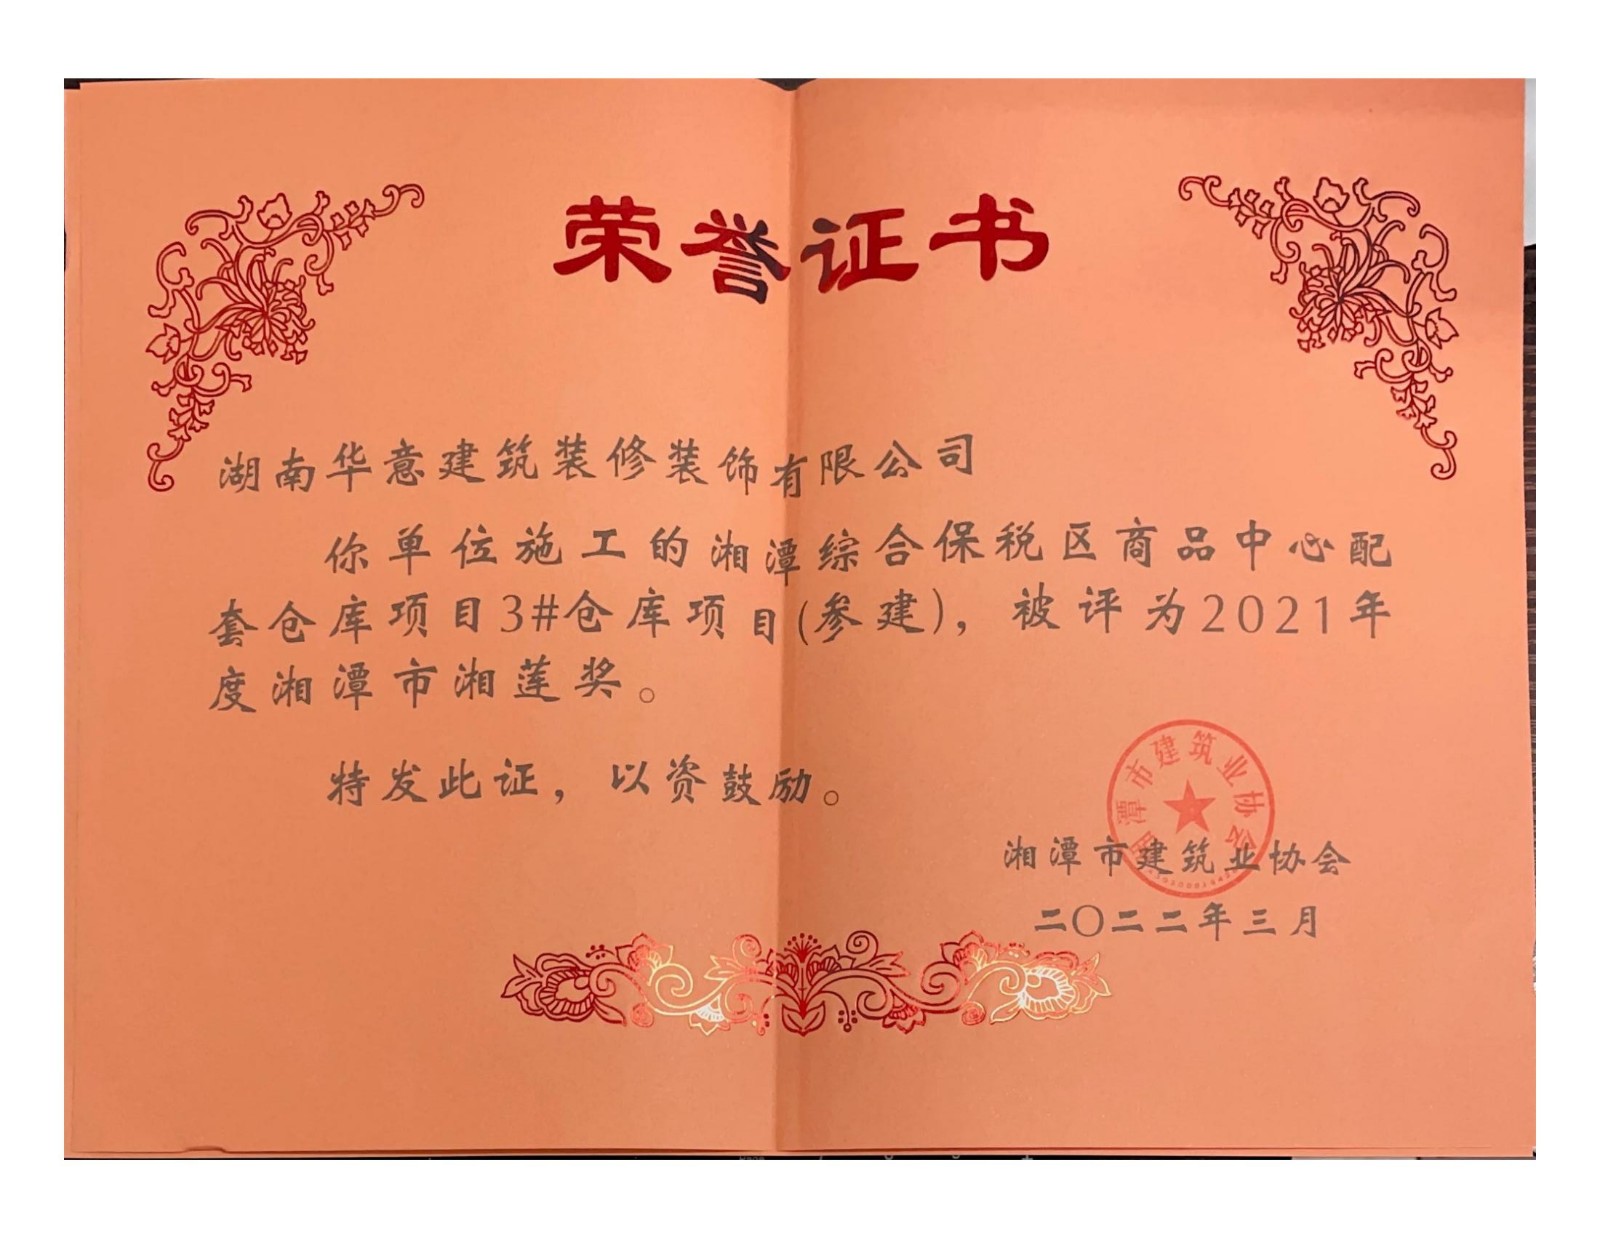 荣誉证书
湖南华意建筑装修装饰有限公司
你单位施工的湘潭综合保税区商品中心配
套仓库项目3#仓库项目(参建)，被评为2021年
度湘潭市湘莲奖。
特发此证，以资鼓励。
湘潭市建筑业协会
湘潭市建筑业协会
二〇二二年三月